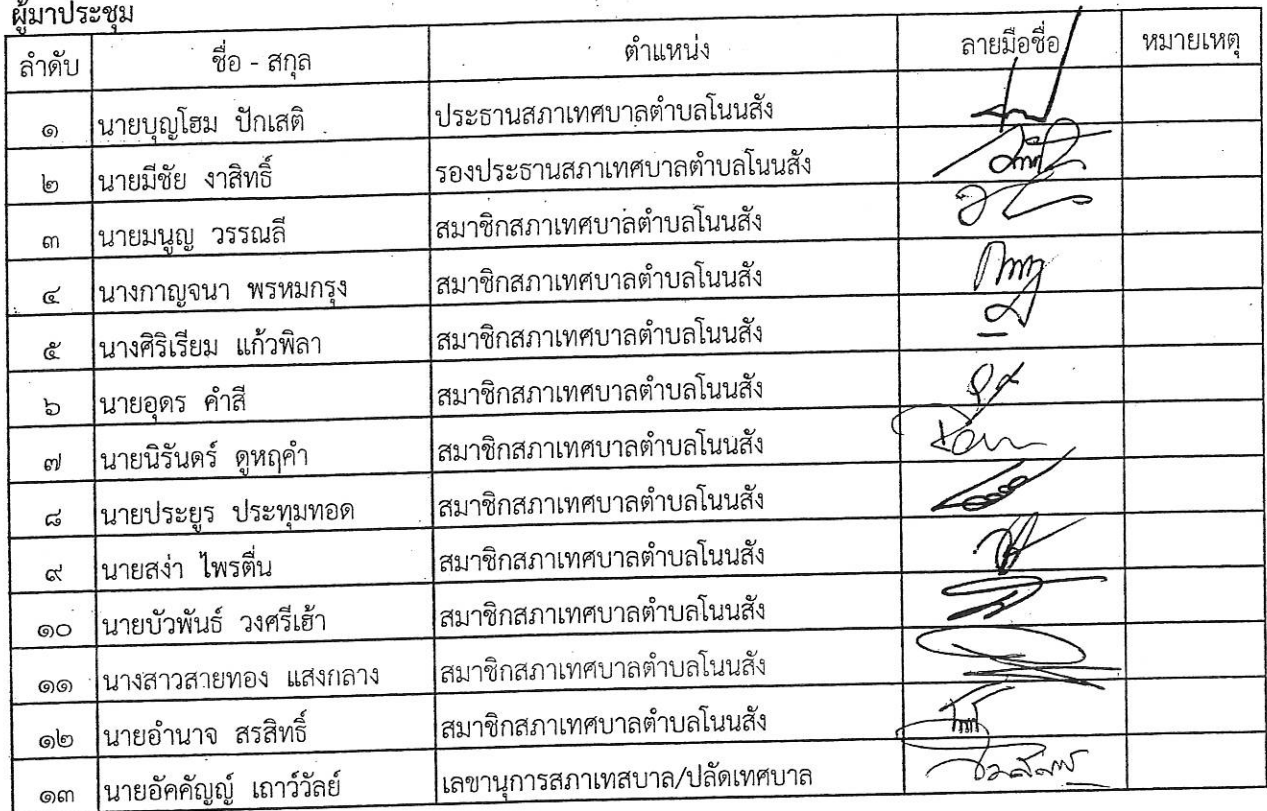 ผู้มาประชุม
ลำดับ ชื่อ - สกุล ตำแหน่ง ลายมือชื่อ หมายเหตุ
๑ นายบุญโฮม ปักเสติ ประธานสภาเทศบาลตำบลโนนสัง
๒ นายมีชัย งาสิทธิ์ รองประธานสภาเทศบาลตำบลโนนสัง
๓ นายมนูญ วรรณลี สมาชิกสภาเทศบาลตำบลโนนสัง
๔ นางกาญจนา พรหมกรุง สมาชิกสภาเทศบาลตำบลโนนสัง
๕ นางศิริเรียม แก้วพิลา สมาชิกสภาเทศบาลตำบลโนนสัง
๖ นายอุดร คำสี สมาชิกสภาเทศบาลตำบลโนนสัง
๗ นายนิรันดร์ ดูหฤคำ สมาชิกสภาเทศบาลตำบลโนนสัง
๘ นายประยูร ประทุมทอด สมาชิกสภาเทศบาลตำบลโนนสัง
๙ นายสง่า ไพรตื่น สมาชิกสภาเทศบาลตำบลโนนสัง
๑๐ นายบัวพันธ์ วงศรีเฮ้า สมาชิกสภาเทศบาลตำบลโนนสัง
๑๑ นางสาวสายทอง แสงกลาง สมาชิกสภาเทศบาลตำบลโนนสัง
๑๒ นายอำนาจ สรสิทธิ์ สมาชิกสภาเทศบาลตำบลโนนสัง
๑๓ นายอัคคัญญ์ เถาว์วัลย์ เลขานุการสภาเทสบาล/ปลัดเทศบาล